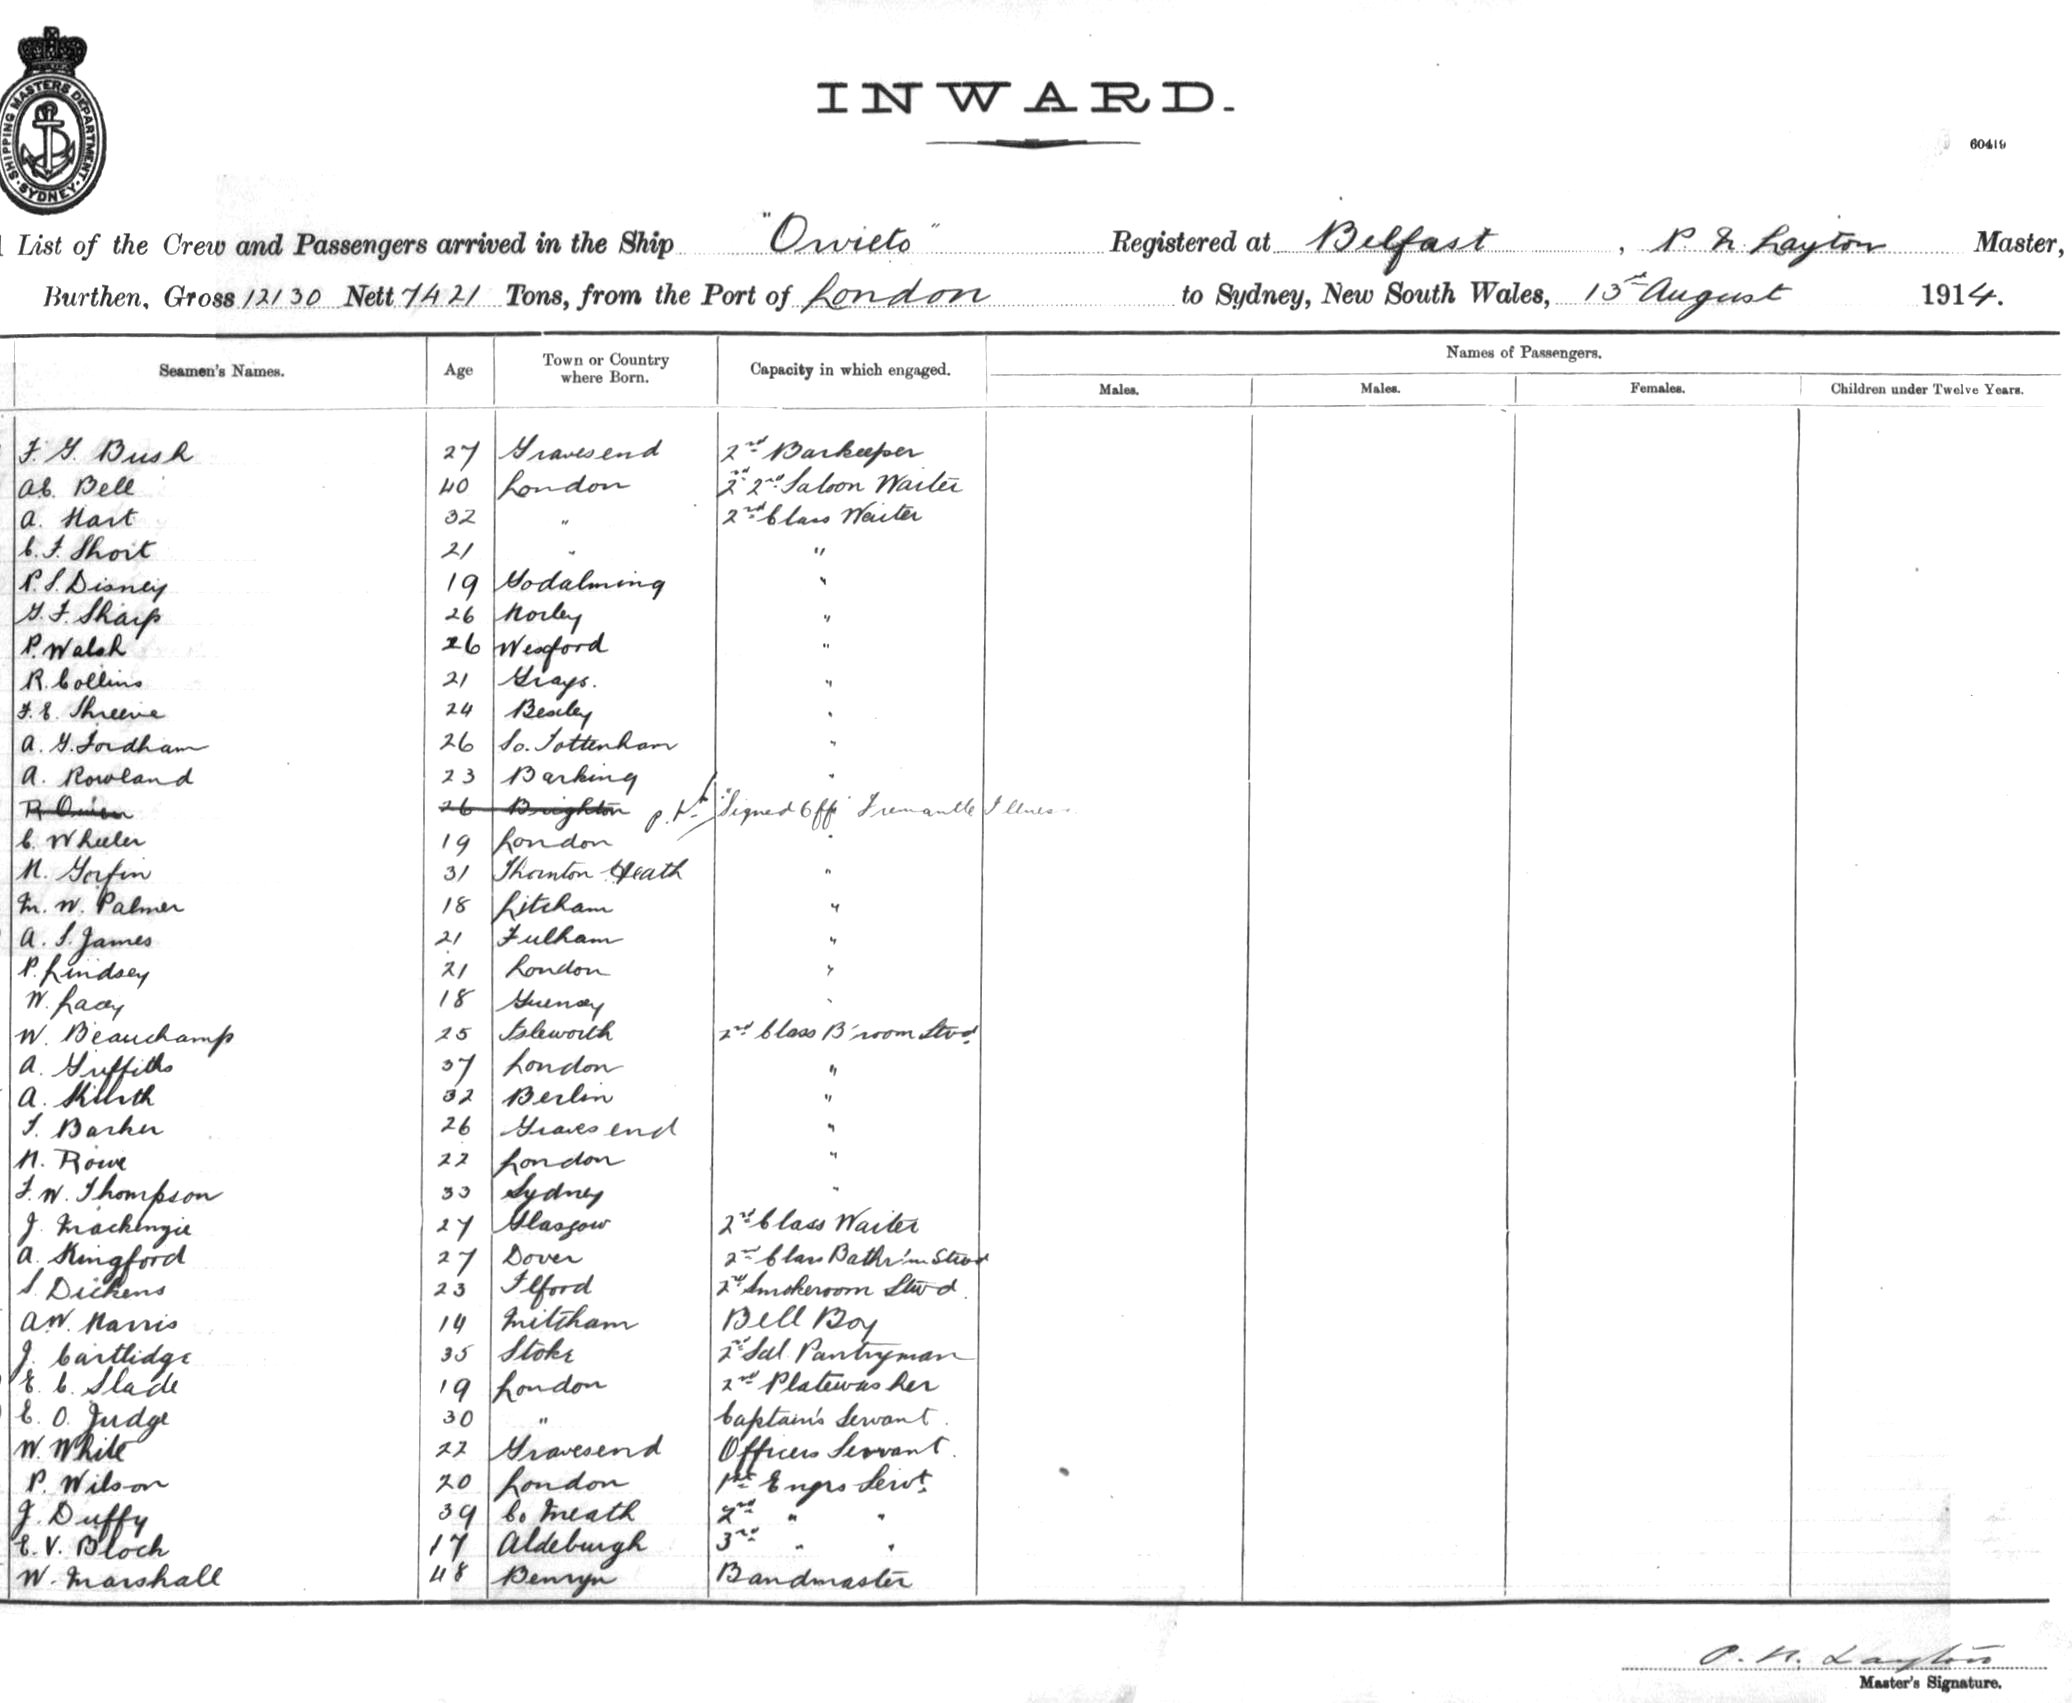 SHIPPING MASTERS DEPARTMENT · SYDNEY ·
INWARD.
60419
List of the Crew and Passengers arrived in the Ship "Orvieto" Registered at Belfast, P. N. Layton Master,
Burthen, Gross 12130 Nett 7421 Tons, from the Port of London to Sydney, New South Wales, 13th August 1914.
Seamen's Names. Age Town or Country where Born. Capacity in which engaged. Names of Passengers.
Males. Males. Females. Children under Twelve Years.
F. G. Bush 27 Gravesend 2nd Barkeeper
AC. Bell 40 London 2nd 2nd Saloon Waiter
A. Hart 32 " 2nd Class Waiter
C. F. Short 21 " "
P. S. Disney 19 Godalming "
G. F. Sharp 26 Morley "
P. Walsh 26 Wexford "
R. Collins 21 Grays. "
F. E. Shreeve 24 Bexley "
A. G. Fordham 26 So. Tottenham "
A. Rowland 23 Barking "
R Owen 26 Brighton "Signed Off" Fremantle Illness
C. Wheeler 19 London "
N. Gorfin 31 Thornton Heath "
M. W. Palmer 18 Litcham "
A. S. James 21 Fulham "
P. Lindsey 21 London "
W. Lacy 18 Guensey "
W. Beauchamp 25 Isleworth 2nd Class B'room Stwd.
A. Griffiths 37 London "
A. 32 Berlin "
F. Barker 26 Gravesend "
H. Rowe 22 London "
F. W. Thompson 33 Sydney "
J. Mackenzie 27 Glasgow 2nd Class Waiter
A. Kingford 27 Dover 2nd Class Bathr'm Stwd
S. Dickens 23 Ilford 2nd Smokeroom Stwd.
A.W. Harris 14 Mitcham Bell Boy
J. Cartlidge 35 Stoke 2nd Sal. Pantryman
E. C. Slade 19 London 2nd Platewasher
E. O. Judge 30 " Captain's Servant.
W. White 22 Gravesend Officers Servant.
P. Wilson 20 London 1st Engrs Servt.
J. Duffy 39 Co Meath 2nd " "
E. V. Block 17 Aldeburgh 3rd " "
W. Marshall 48 Benryn Bandmaster
P. N. Layton
Master's Signature.